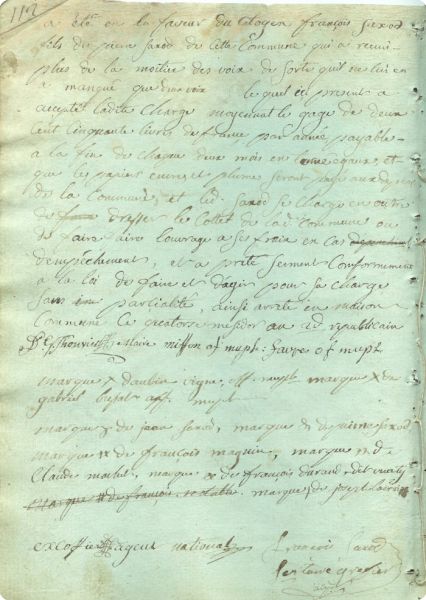 112
a été en la faveur du Citoyen françois Jaxod
fils de Jaxod de cette Commune qui a reuni
plus de la moitié des voix de sorte qu'il ne lui en
a manqué que une voix lequel ici présent a
accepté ladite Charge moyennant le gage de deux
cent cinquante livres de france par année payable
à la fin de chaque deux mois en egaux, et
que les papiers encre et plume seront payé aux
de la Commune, et led. Jaxod se charge en outre
de dresser le Cottet de lad. commune ou
de faire faire l'ouvrage a ses fraix en cas
d'empêchement, et a prêté serment Conformement
a la loi de faire et d'agir pour sa charge
sans partialité, ainsi arreté en maison
Commune ce quatorse mesidor an 2d républicain
maire off mupl. favre of mupl.
marque x d'aubin vigne, off. mupl. marque x de
gabriel off. mupl
marque x de jean Jaxod, marque de Jaxod
marque x de françois maguin, marque de
Claude marque x de françois durand dit
marque x de françois marque de
agent national françois Jaxod
greffier